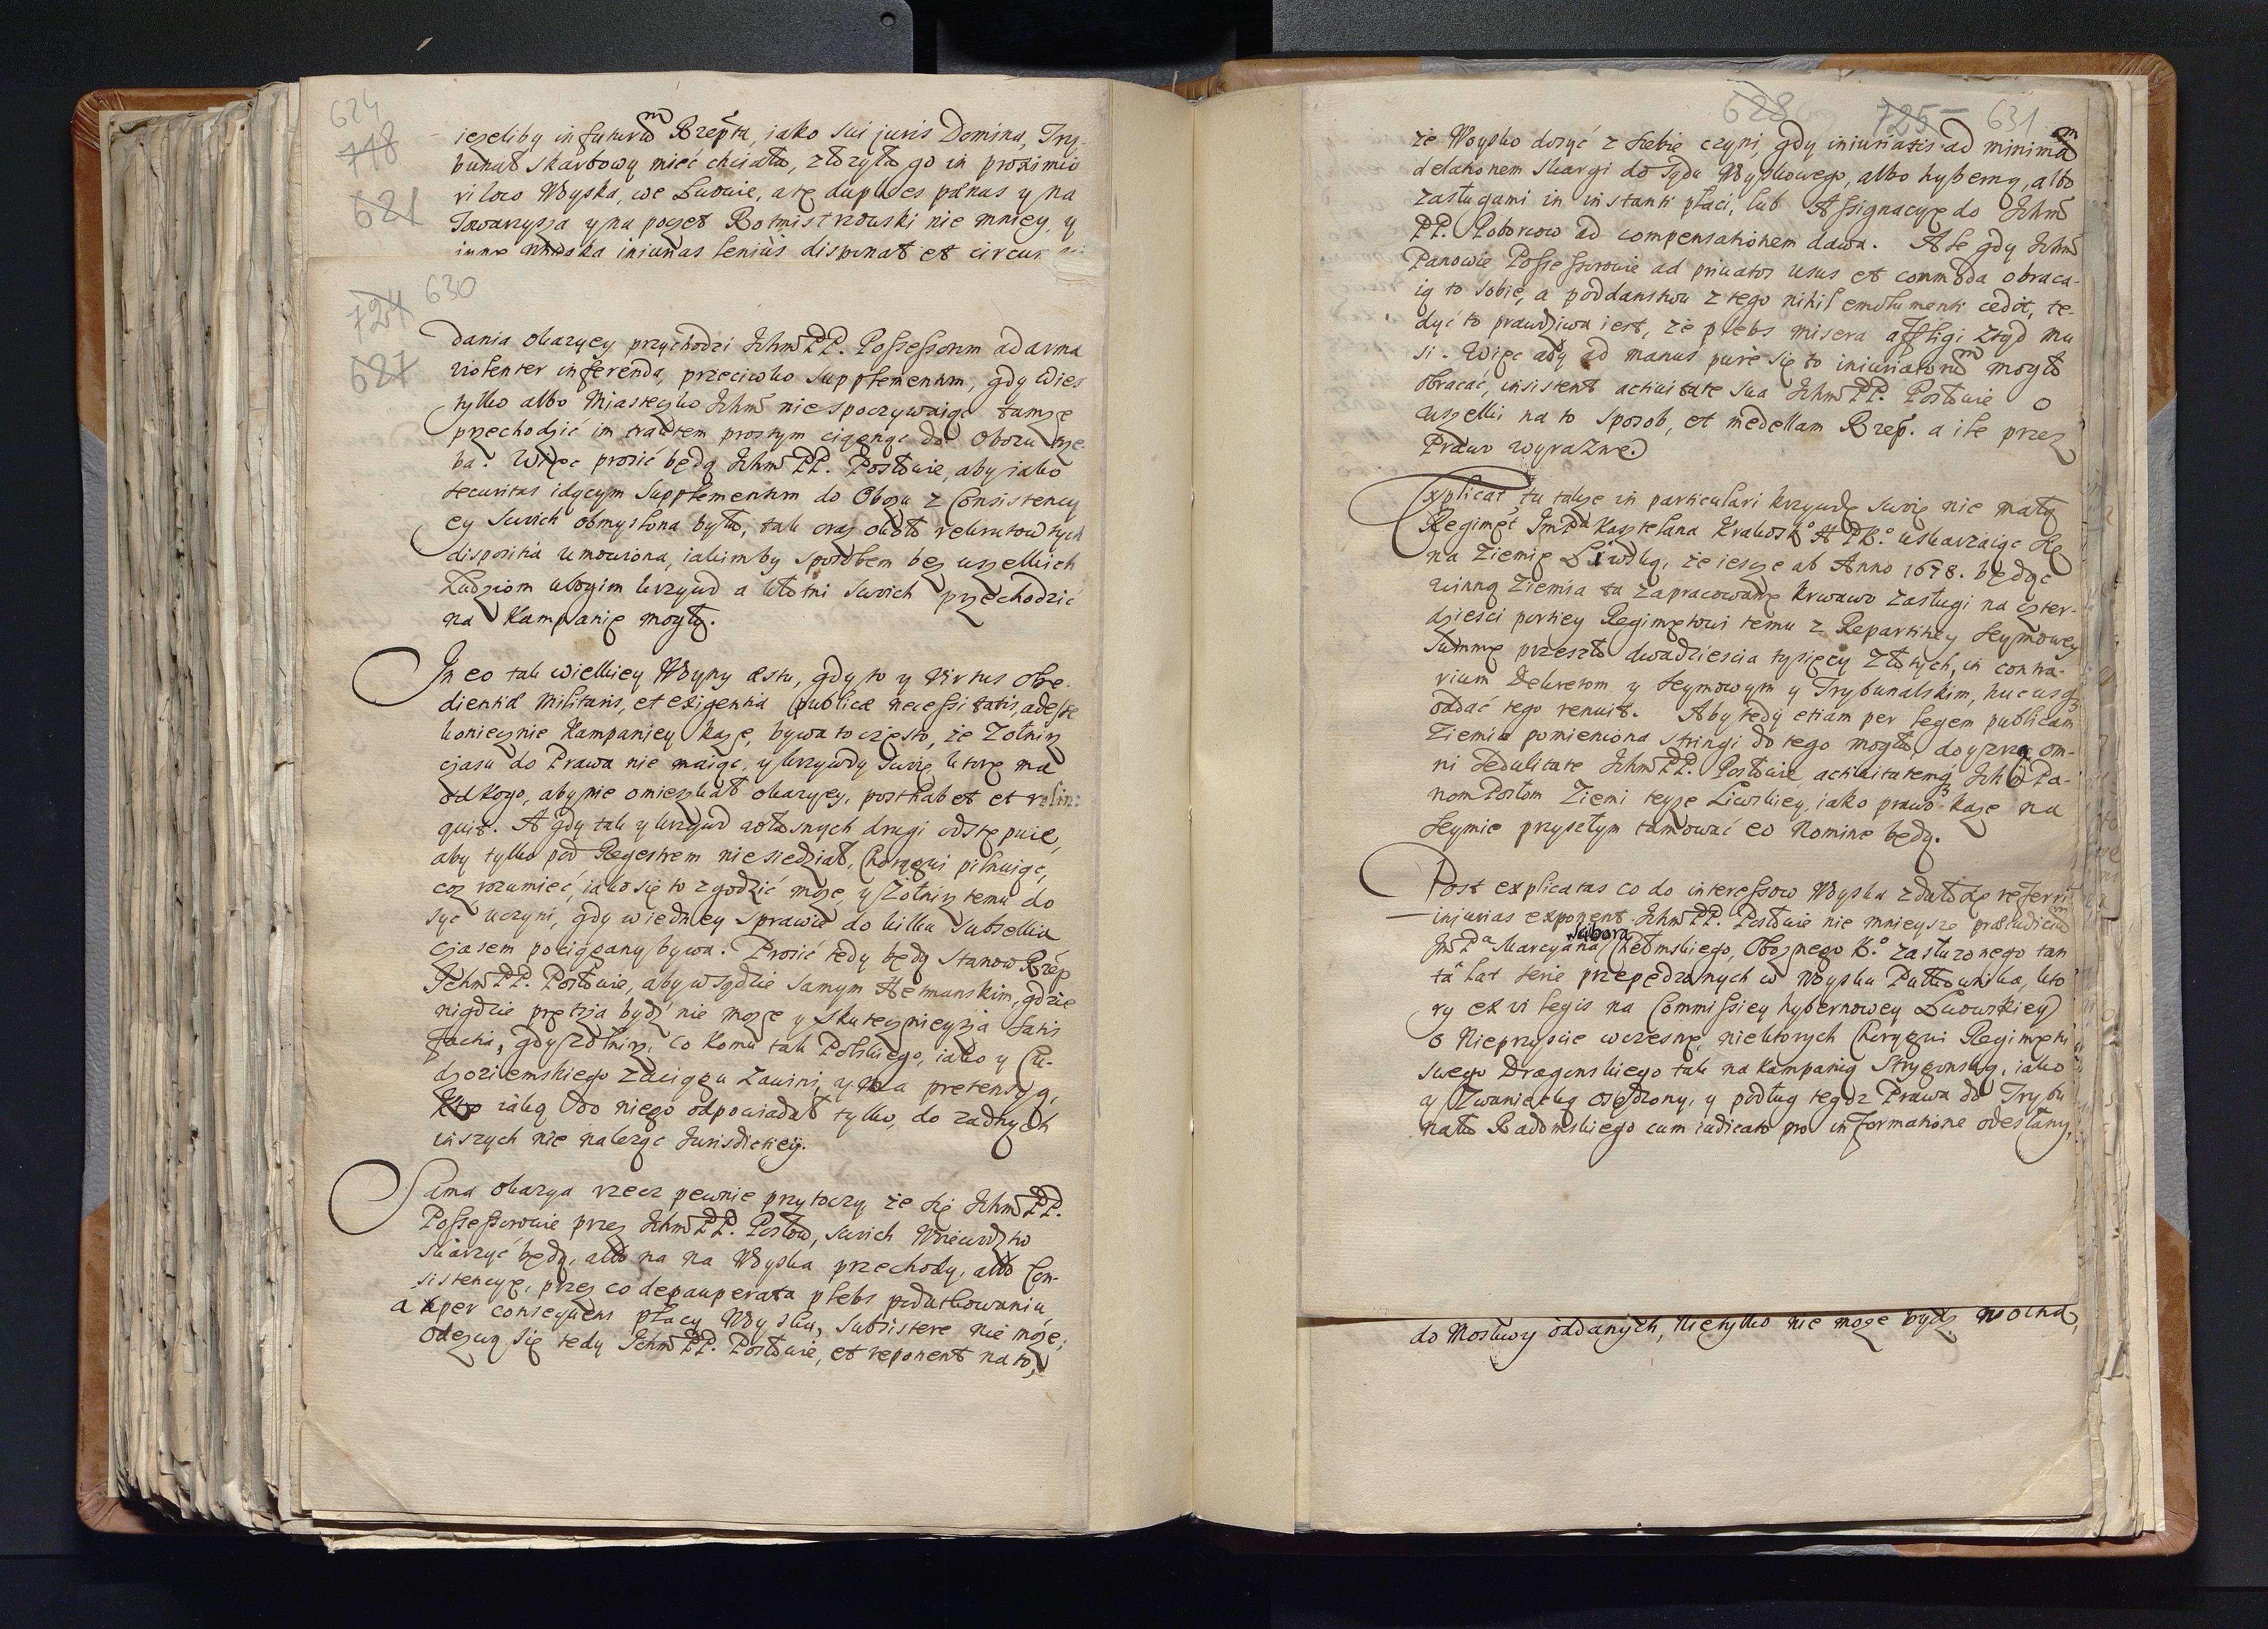 624
718
621
ieżeliby in futurum Rzepta, iako sui juris Domina, Try-
bunał skarbowy mieć chciała, złożyła go in proximio
ri loco Woyska, we Lwowie, a te duplices pænas y na
Towarzysza y na poczet Rotmistrzowski nie mniey, y
inne Woyska iniurias lenius disponat et circum
724 630
627
dania okazyey przychodzi Ichm PP. Possessorum ad arma
violenter inferenda, przeciwko supplementum, gdy wies
tylko albo Miasteczko Ichm nie spoczywaiąc tamże
przechodzić im traktem prostym ciągnąc do Obozu trze-
ba. Więc prosić będą Ichm PP. Posłowie, aby iako
securitas idącym supplementum do Obozu z Consistency
ey swoich obmyslona była, tak oraz około rekrutow tych
dispositia umowiona, iakimby sposobem bez wszelkich
Ludziom ubogim krzywd a kłotni swoich przechodzić
na Kampanię mogły.
In eo tak wielkiey Woyny æstu, gdy to y virtus obe-
dientiæ militaris, et exigentia publicæ necessitatis, adesse
koniecznie Kampaniey każe, bywa to często, że Zołnirz
czasu do Prawa nie maiąc, y krzywdy swoie, ktore ma
od kogo, aby nie omieszkał okazyey, posthabet et relin:
quit. A gdy tak y krzywd własnych drugi odstępuie,
aby tylko pod Regestrem nie siedział, Chorągwi pilnuiąc,
coż rozumieć, iako się to zgodzić może, y Zołnirz temu do
syć uczyni, gdy w iedney sprawie do kilku Subsellia
czasem pociągany bywa. Prosić tedy będą Stanow Rzep
Ichm PP. Posłowie, aby w sądzie samym Hetmanskim, gdzie
nigdzie prętsza bydź nie może y skutecznieysza satis
factia, gdy Zołnirz, co komu tak Polskiego, iako y Cu-
dzoziemskiego zaciągu zawini, y ma pretensyą,
iaką do niego odpowiadał tylko, do żadnych
inszych nie należąc Jurisdictiey.
Sama okazya rzecz pewnie przytoczy, że się Ichm PP.
Possessorowie przez Ichm PP. Posłow, swoich Woiewodztw
skarżyć będą, albo na na Woyska przechody, albo Con-
sistencye, przez co depauperata plebs podatkowaniu
a per consequens płacy Woysku, subsistere nie może;
odezwą się tedy Ichm PP. Posłowie, et reponent na to,
628 725 631
że Woysko dosyć z siebie czyni, gdy iniuriatis ad minimam
delationem skargi do sądu Woyskowego, albo hyberną, albo
zasługami in instanti płaci, lub Assignacye do Ichm
PP. Poborcow ad compensationem dawa. Ale gdy Ichm
Panowie Possessorowie ad privatos usus et commoda obraca-
ią to sobie, a poddanstwu z tego nihil emolumenti cedit, te-
dyć to prawdziwa iest, że plebs misera affligi ztąd mu
si. Więc aby ad manus pure się to iniuriatorum mogło
obracać, insistent activitate sua Ichm PP. Posłowie o
wszelki na to sposob, et medellam Rzep. a ile przez
Prawo wyrazne.
Explicat, tu także in particulari krzywdę swoię nie małą
Regimęt Im Pa Kasztelana Krakowsko H P K.o uskarzaiąc się
na Ziemię Liwską, że iescze ab Anno 1678. będąc
winną Ziemia ta zapracowane krwawo zasługi na czter-
dziesci portiey Regimętowi temu z Repartitiey Seymowey
summę przeszło dwadziescia tysięcy Złotych, in contra-
rium Dekretom y Seymowym y Trybunalskim, hucusq
oddać tego renuit. Aby tedy etiam per legem publicam
Ziemia pomieniona stringi do tego mogła, doyzrzą om-
ni sedulitate Ichm PP. Posłowie, activitatemq Ichm Pa-
nom Posłom Ziemi teyże Liwskiey, iako prawo każe na
Seymie przyszłym tamować eo Nomine będą.
Post explicatas co do interessow Woyska zdało się referri
iniurias exponent Ichm PP. Posłowie nie mnieysze præiudicium
Im Pa Marcyana Scibora Chełmskiego, Oboznego K.o zasłużonego tan
ta lat serie przepędzonych w Woysku Pułkownika, kto
ry ex vi legis na Commissiey hybernowey Lwowskiey
o Nieprzyscie wczesne, niektorych Chorągwi Regimętu
swego Dragonskiego tak na Kampanią Strygonską, iako
y Zwaniecką osądzony, y podług tegoż Prawa do Trybu
nału Radomskiego cum iudicato pro informatione odesłany,
do Moskwy oddanych, nie tylko nie może bydź wolna,